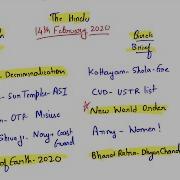 The Hindu
14th February 2020
Quick
Brief
Decriminalization
- Sun Temple - ASI
- OTF Misuse
Shivaji - Navy + Coast
Guard
of Earth - 2020
Kottayam - Shola - Fire
CVD - USTR list
* New World Order
Army - Women!
Bharat Ratna - Dhyan Chand